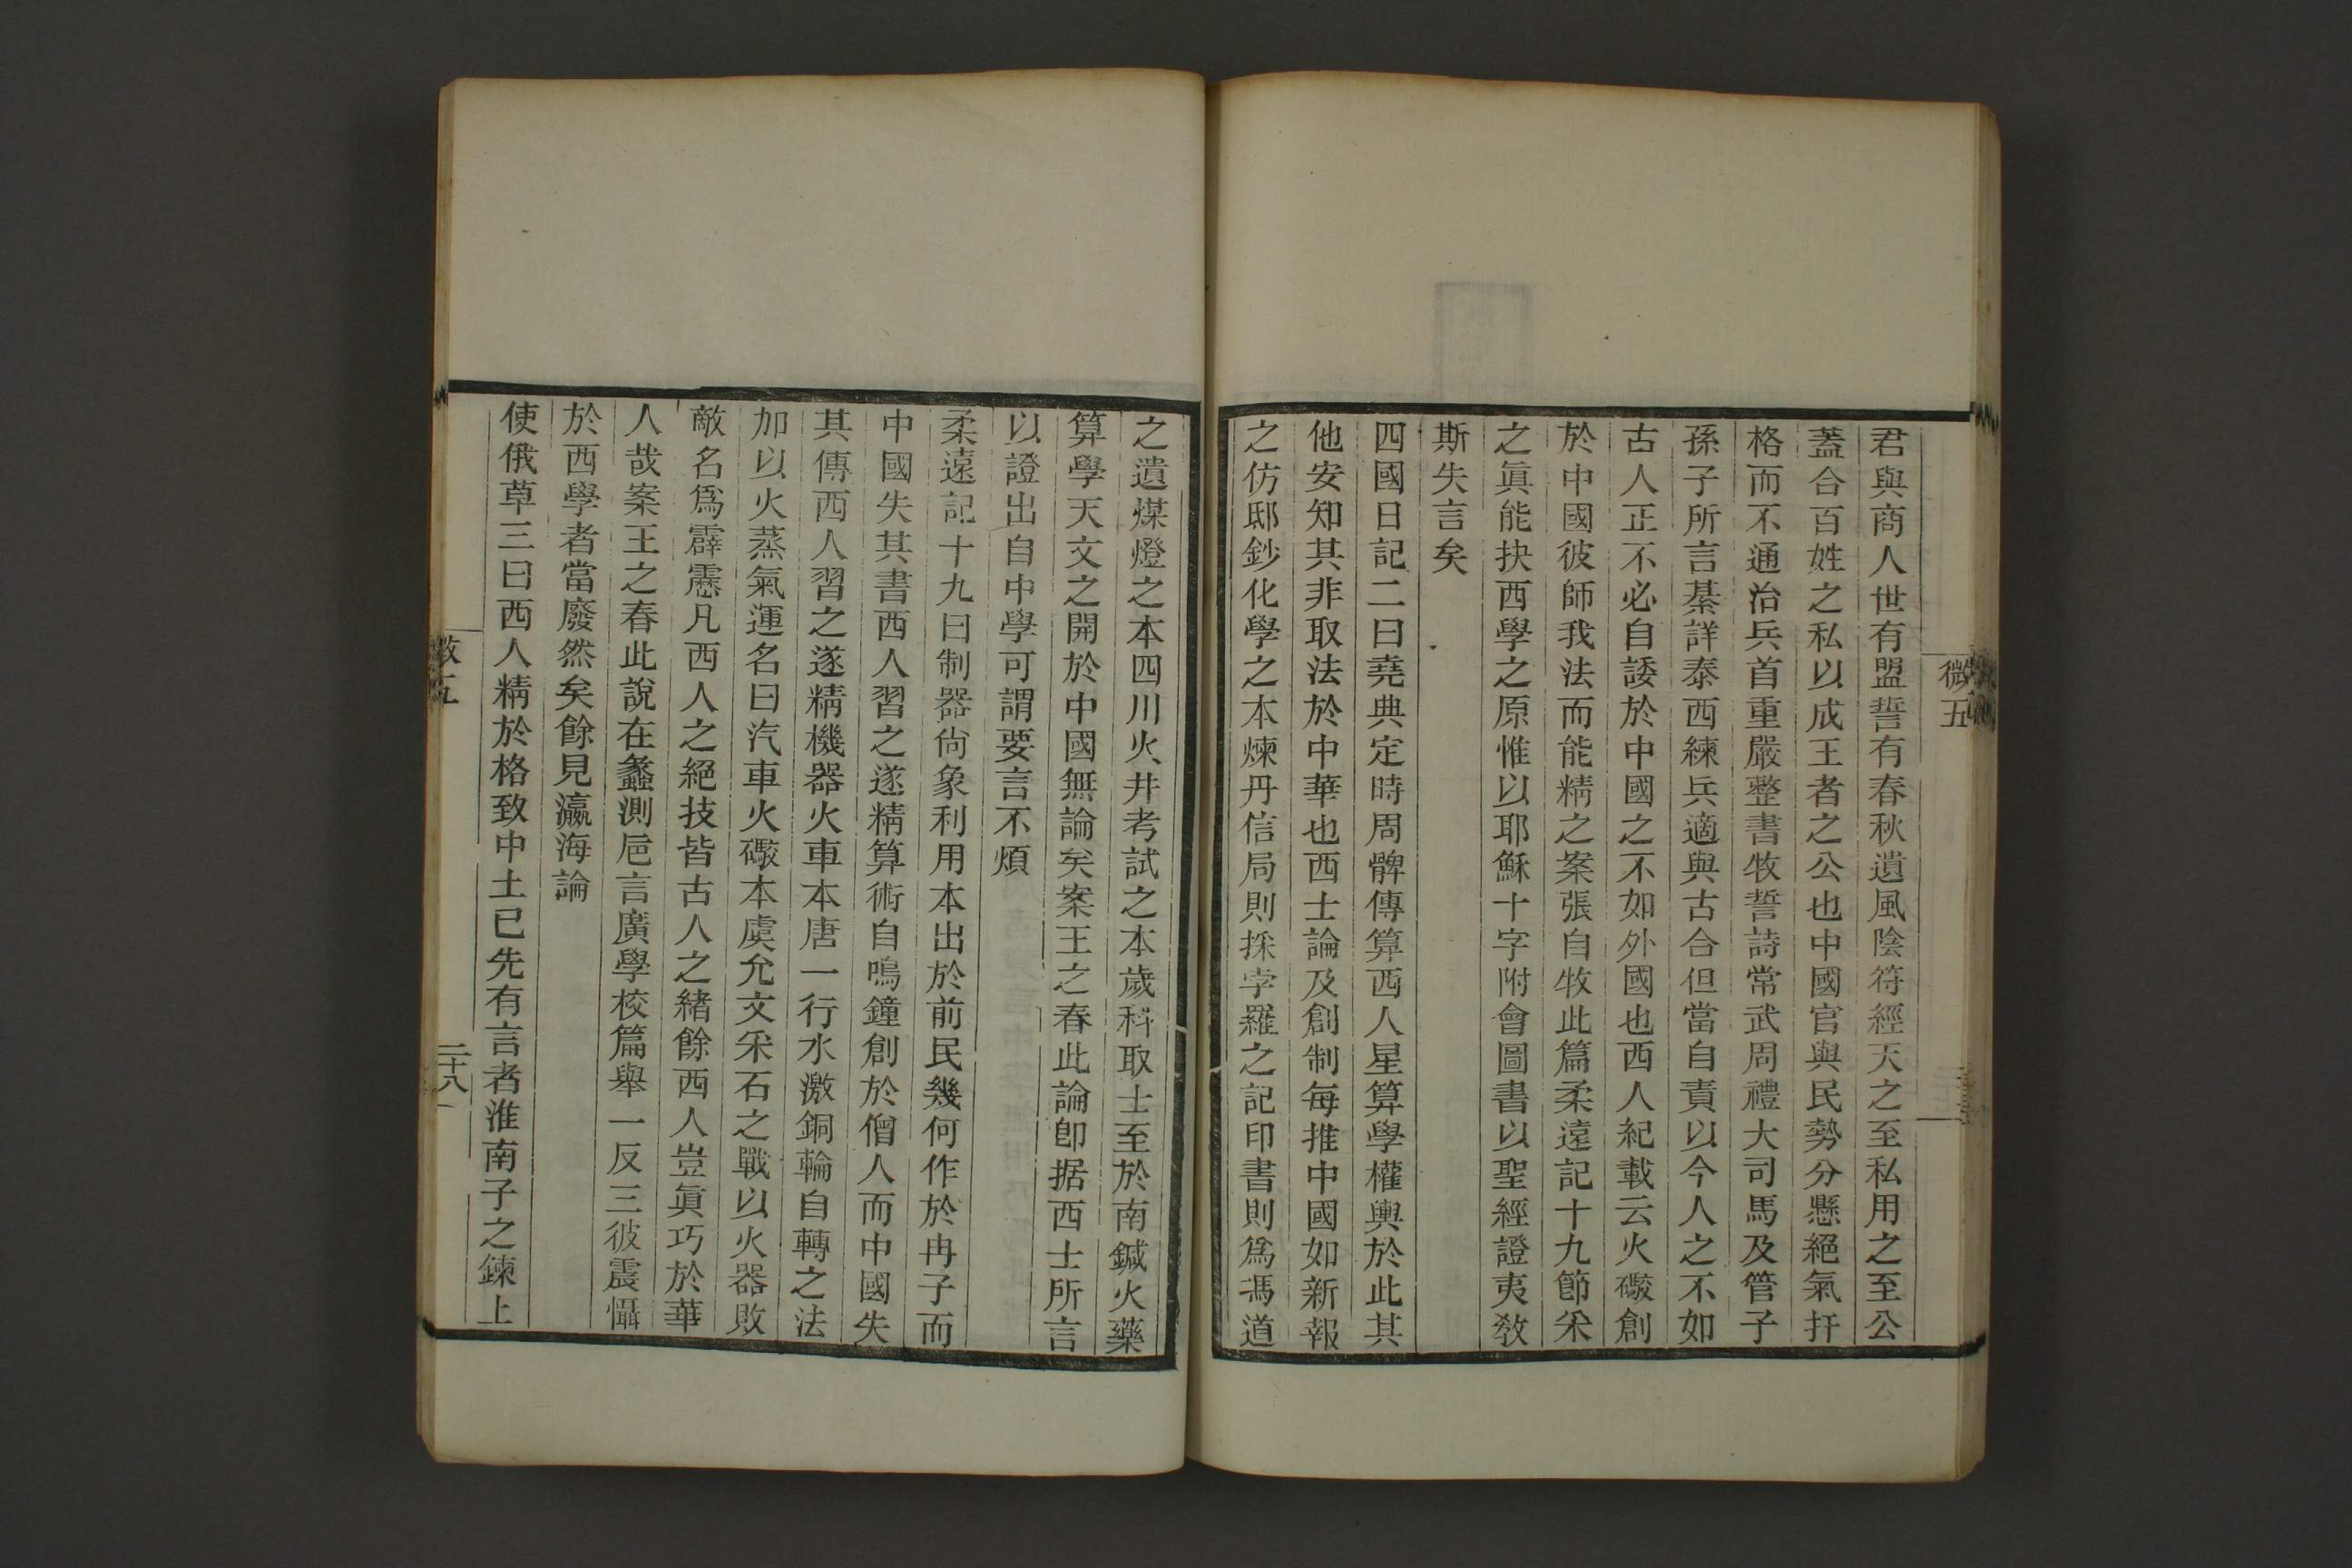 微五
君與商人世有盟誓有春秋遺風陰符經天之至私用之至公
蓋合百姓之私以成王者之公也中國官與民勢分懸絕氣扞
格而不通治兵首重嚴整書牧誓詩常武周禮大司馬及管子
孫子所言綦詳泰西練兵適與古合但當自責以今人之不如
古人正不必自諉於中國之不如外國也西人紀載云火礮創
於中國彼師我法而能精之案張自牧此篇柔遠記十九節采
之眞能抉西學之原惟以耶穌十字附會圖書以聖經證夷敎
斯失言矣
四國日記二曰堯典定時周髀傳算西人星算學權輿於此其
他安知其非取法於中華也西士論及創制每推中國如新報
之仿邸鈔化學之本煉丹信局則採孛羅之記印書則爲馮道
之遺煤燈之本四川火井考試之本歲科取士至於南鍼火藥
算學天文之開於中國無論矣案王之春此論卽据西士所言
以證出自中學可謂要言不煩
柔遠記十九曰制器尙象利用本出於前民幾何作於冉子而
中國失其書西人習之遂精算術自鳴鐘創於僧人而中國失
其傳西人習之遂精機器火車本唐一行水激銅輪自轉之法
加以火蒸氣運名曰汽車火礮本虞允文采石之戰以火器敗
敵名爲霹靂凡西人之絕技皆古人之緖餘西人豈眞巧於華
人哉案王之春此說在蠡測巵言廣學校篇舉一反三彼震懾
於西學者當廢然矣餘見瀛海論
使俄草三曰西人精於格致中土已先有言者淮南子之鍊土
二十八